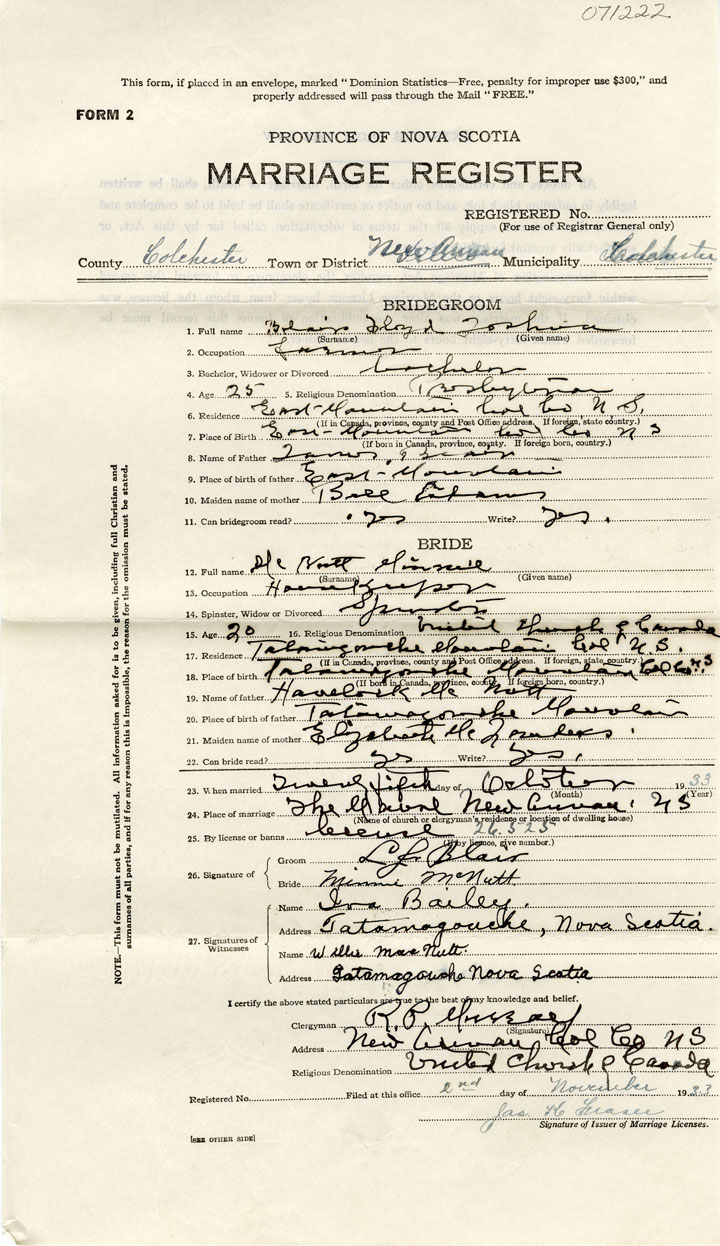 071222
This form, if placed in an envelope, marked "Dominion Statistics—Free, penalty for improper use $300," and
properly addressed will pass through the Mail "FREE."
FORM 2
PROVINCE OF NOVA SCOTIA
MARRIAGE REGISTER
REGISTERED No.
(For use of Registrar General only)
County Colchester Town or District New Annan Municipality Colchester
BRIDEGROOM
1. Full name Blair Floyd
(Surname) (Given name)
2. Occupation farmer
3. Bachelor, Widower or Divorced bachelor
4. Age 25 5. Religious Denomination Presbyterian
6. Residence East Mountain Col Co N.S.
(If in Canada, province, county and Post Office address. If foreign, state country.)
7. Place of Birth East Mountain Col Co N S
(If born in Canada, province, county. If foreign born, country.)
8. Name of Father James Blair
9. Place of birth of father East Mountain
10. Maiden name of mother
11. Can bridegroom read? yes Write? yes.
BRIDE
12. Full name Mc Nutt Minnie
(Surname) (Given name)
13. Occupation House Keeper
14. Spinster, Widow or Divorced Spinster
15. Age 20 16. Religious Denomination United Church of Canada
17. Residence Tatamagouche Mountain Col N.S.
(If in Canada, province, county and Post Office address. If foreign, state country.)
18. Place of birth Tatamagouche Mountain Col Co N S
(If born in Canada, province, county. If foreign born, country.)
19. Name of father Havelock Mc Nutt
20. Place of birth of father Tatamagouche Mountain
21. Maiden name of mother Elizabeth
22. Can bride read? yes Write? yes.
23. When married Twenty fifth day of October 1933
(Month) (Year)
24. Place of marriage The Manse New Annan. N S
(Name of church or clergyman's residence or location of dwelling house)
25. By license or banns license 26,525
(If by licence, give number.)
26. Signature of
Groom Blair
Bride Minnie McNutt
27. Signatures of Witnesses
Name Iva Bailey.
Address Tatamagouche, Nova Scotia.
Name Willie MacNutt.
Address Tatamagouche Nova Scotia
I certify the above stated particulars are true to the best of my knowledge and belief.
Clergyman R. P. Murray
(Signature)
Address New Annan Col Co NS
Religious Denomination United Church of Canada
Registered No. Filed at this office 2nd day of November 1933
Jas. K. Fraser
Signature of Issuer of Marriage Licenses.
[SEE OTHER SIDE]
NOTE.—This form must not be mutilated. All information asked for is to be given, including full Christian and
surnames of all parties, and if for any reason this is impossible, the reason for the omission must be stated.